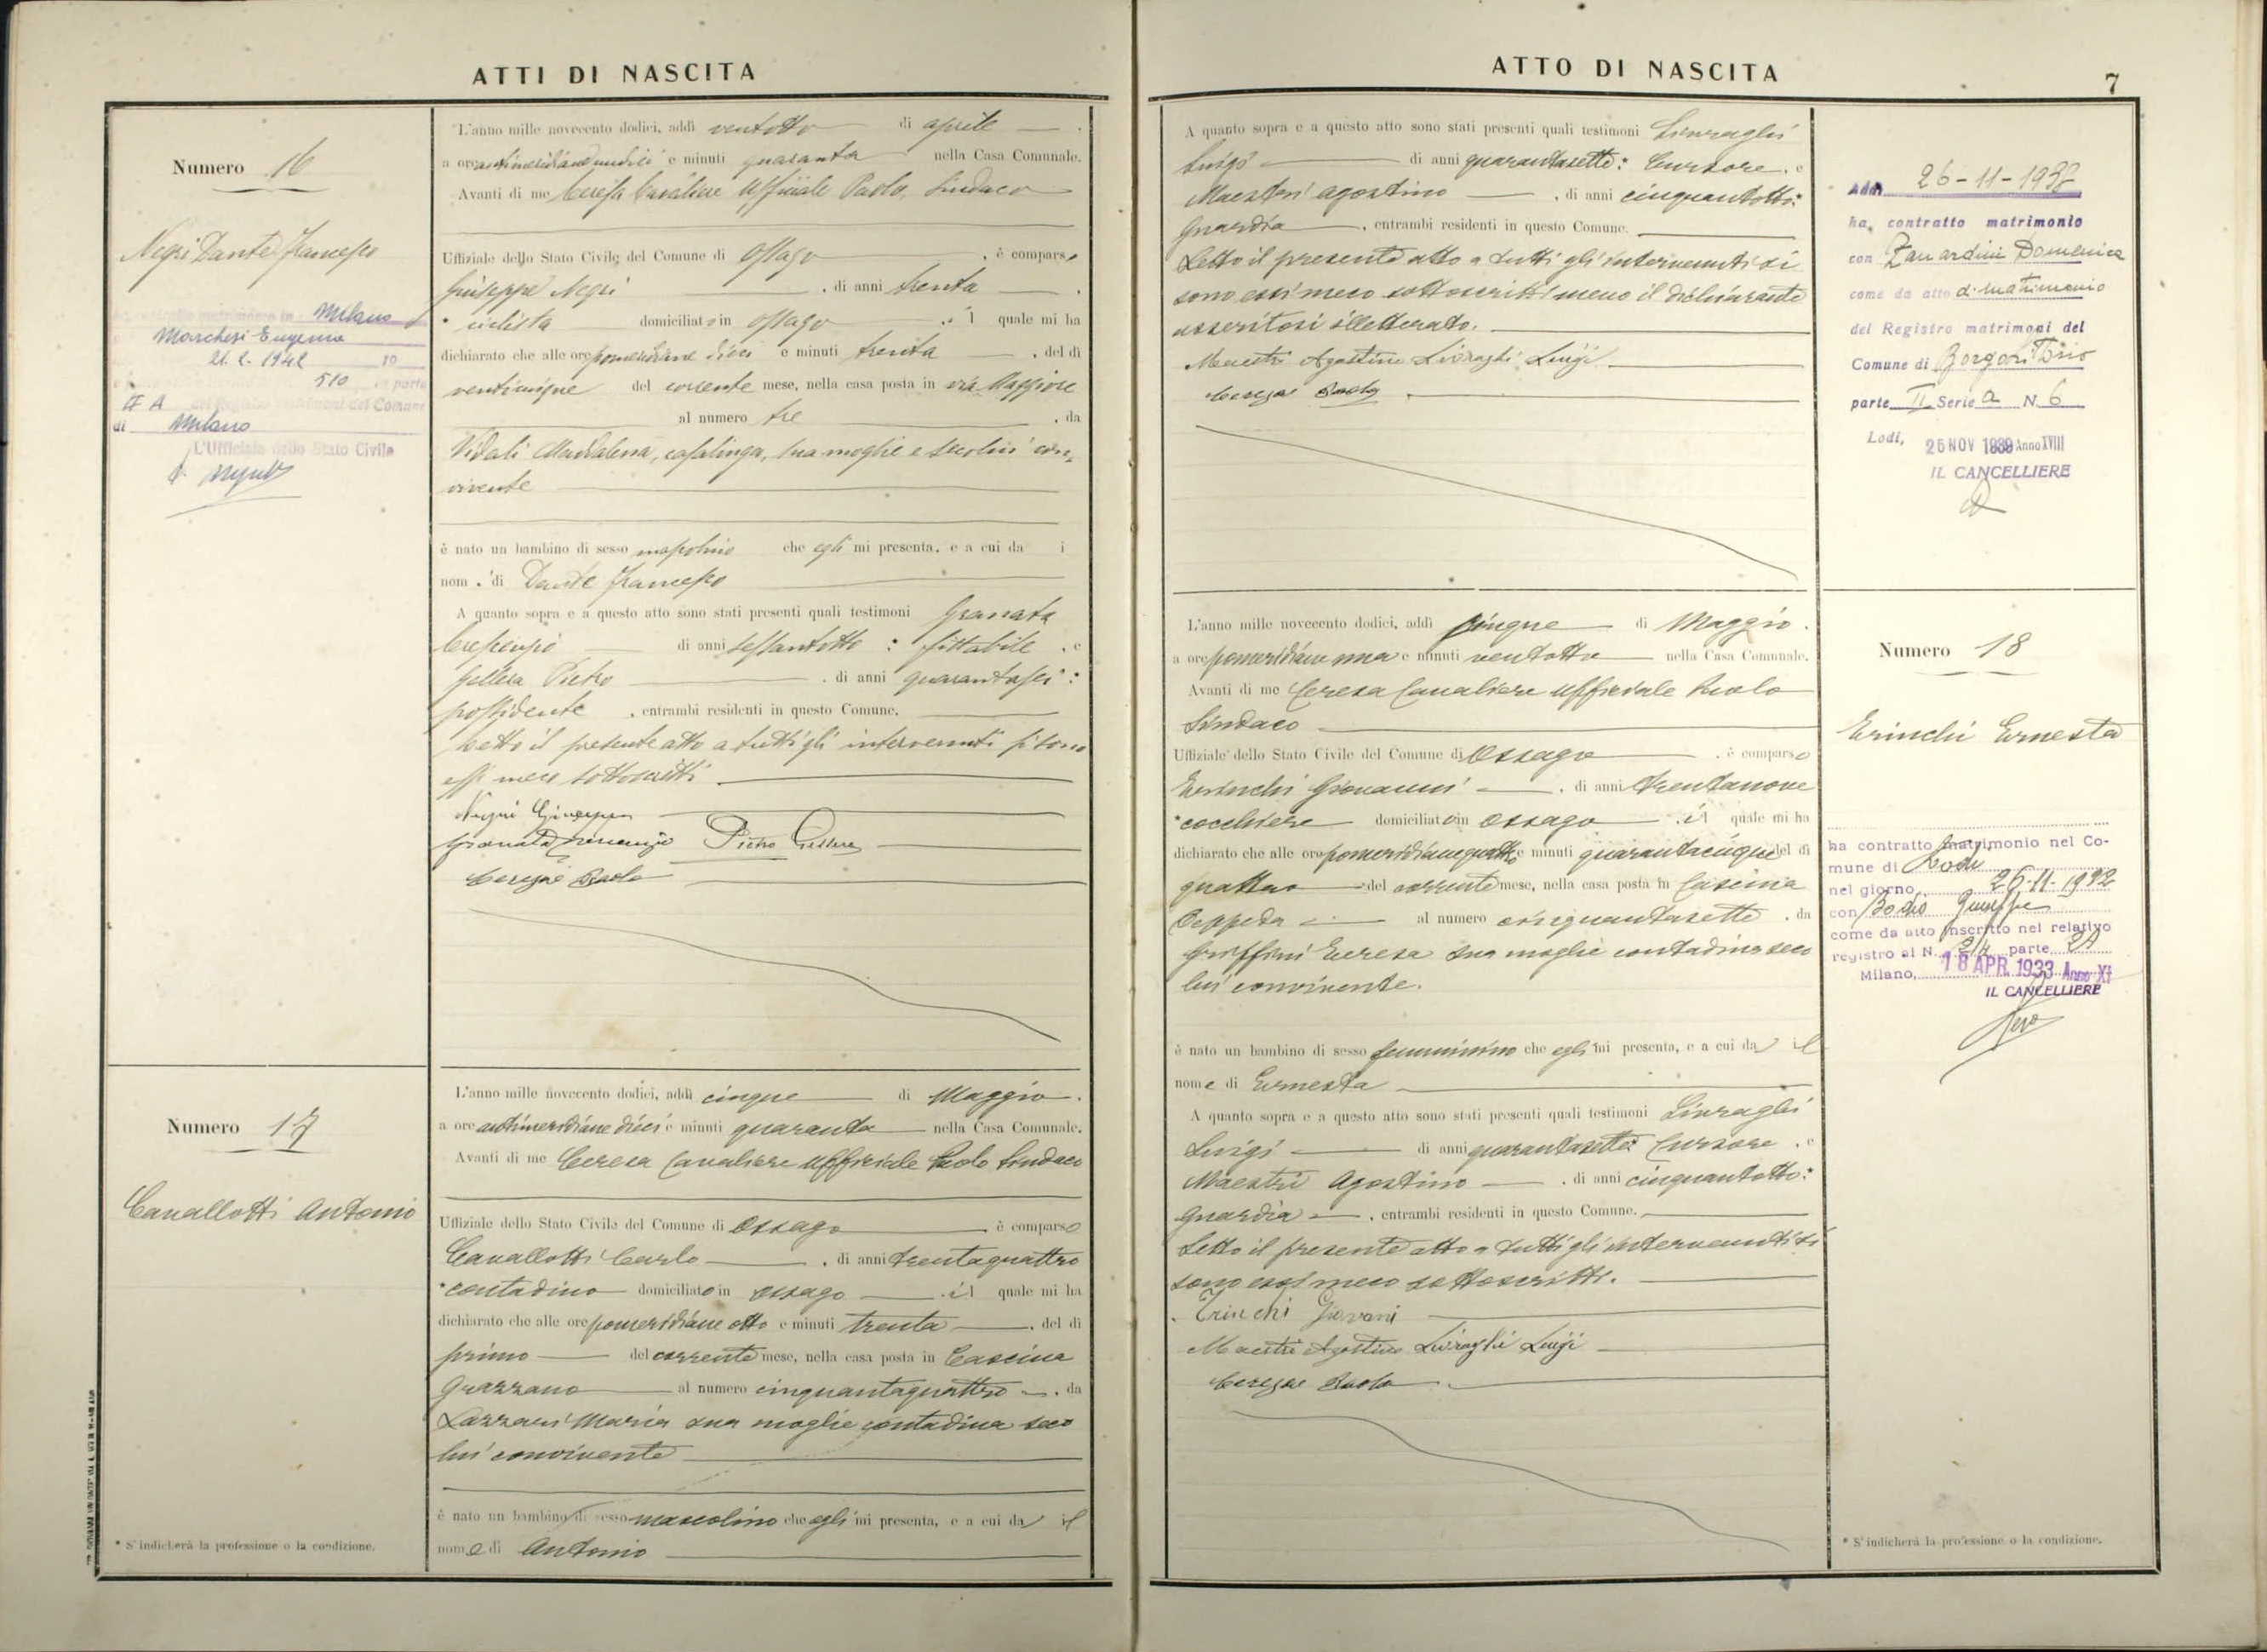 ATTI DI NASCITA
Numero 16
Negri Dante Francesco
Milano
Marchesi Eugenia
21. 2. 1942 10
510 parte
II A del Comune
di Milano
L'Ufficiale dello Stato Civile
L'anno mille novecento dodici, addì ventotto di aprile
a ore antimeridiane undici e minuti quaranta nella Casa Comunale.
Avanti di me Ceresa Cavaliere Ufficiale Paolo, Sindaco
Uffiziale dello Stato Civile del Comune di Ossago , è comparso
Giuseppe Negri , di anni trenta
* domiciliato in Ossago , il quale mi ha
dichiarato che alle ore pomeridiane dieci e minuti trenta , del dì
venticinque del corrente mese, nella casa posta in via Maggiore
al numero tre , da
Vidali Maddalena, casalinga, sua moglie e secolui con-
vivente
è nato un bambino di sesso mascolino che egli mi presenta, e a cui da i
nomi di Dante Francesco
A quanto sopra e a questo atto sono stati presenti quali testimoni Granata
Crescenzio di anni sessantotto : fittabile , e
Gellera Pietro , di anni quarantasei :
possidente , entrambi residenti in questo Comune.
Letto il presente atto a tutti gli intervenuti si sono
essi meco sottoscritti
Negri Giuseppe
Granata Crescenzio Pietro Gellera
Ceresa Paolo
Numero 17
Cavallotti Antonio
L'anno mille novecento dodici, addì cinque di Maggio.
a ore antimeridiane dieci e minuti quaranta nella Casa Comunale.
Avanti di me Ceresa Cavaliere Ufficiale Paolo Sindaco
Uffiziale dello Stato Civile del Comune di Ossago è comparso
Cavallotti Carlo , di anni trentaquattro
* contadino domiciliato in Ossago , il quale mi ha
dichiarato che alle ore pomeridiane otto e minuti trenta , del dì
primo del corrente mese, nella casa posta in Cascina
Grazzano al numero cinquantaquattro , da
Lazzari Maria sua moglie contadina seco
lui convivente
è nato un bambino di sesso mascolino che egli mi presenta, e a cui da il
nome di Antonio
* S'indicherà la professione o la condizione.
ATTO DI NASCITA
7
A quanto sopra e a questo atto sono stati presenti quali testimoni Livraghi
Luigi di anni quarantasette: Cursore, e
Maestri Agostino , di anni cinquantotto:
Guardia , entrambi residenti in questo Comune.
Letto il presente atto a tutti gli intervenuti si
sono essi meco sottoscritti meno il dichiarante
asseritosi illetterato.
Maestri Agostino Livraghi Luigi
Ceresa Paolo
Addì 26-11-1938
ha contratto matrimonio
con Zanardini Domenica
come da atto di matrimonio
del Registro matrimoni del
Comune di Borgo S. Tosio
parte II Serie A N. 6
Lodi, 25 NOV 1939 Anno XVIII
IL CANCELLIERE
L'anno mille novecento dodici, addì cinque di Maggio.
a ore pomeridiane una e minuti ventotto nella Casa Comunale.
Avanti di me Ceresa Cavaliere Ufficiale Paolo
Sindaco
Uffiziale dello Stato Civile del Comune di Ossago , è comparso
Trinchi Giovanni , di anni trentanove
* cocchiere domiciliato in Ossago , il quale mi ha
dichiarato che alle ore pomeridiane quattro e minuti quarantacinque del dì
quattro del corrente mese, nella casa posta in Cascina
Ceppeda al numero cinquantasette , da
Griffini Teresa sua moglie contadina seco
lui convivente.
è nato un bambino di sesso femminino che egli mi presenta, e a cui da il
nome di Ernesta
A quanto sopra e a questo atto sono stati presenti quali testimoni Livraghi
Luigi di anni quarantasette: Cursore , e
Maestri Agostino , di anni cinquantotto:
Guardia , entrambi residenti in questo Comune.
Letto il presente atto a tutti gli intervenuti si
sono essi meco sottoscritti.
Trinchi Giovani
Maestri Agostino Livraghi Luigi
Ceresa Paolo
Numero 18
Trinchi Ernesta
ha contratto matrimonio nel Co-
mune di Lodi
nel giorno 26-11-1932
con Bodio Giuseppe
come da atto inscritto nel relativo
registro al N. parte 2A
Milano, 18 APR. 1933 Anno XI
IL CANCELLIERE
* S'indicherà la professione o la condizione.